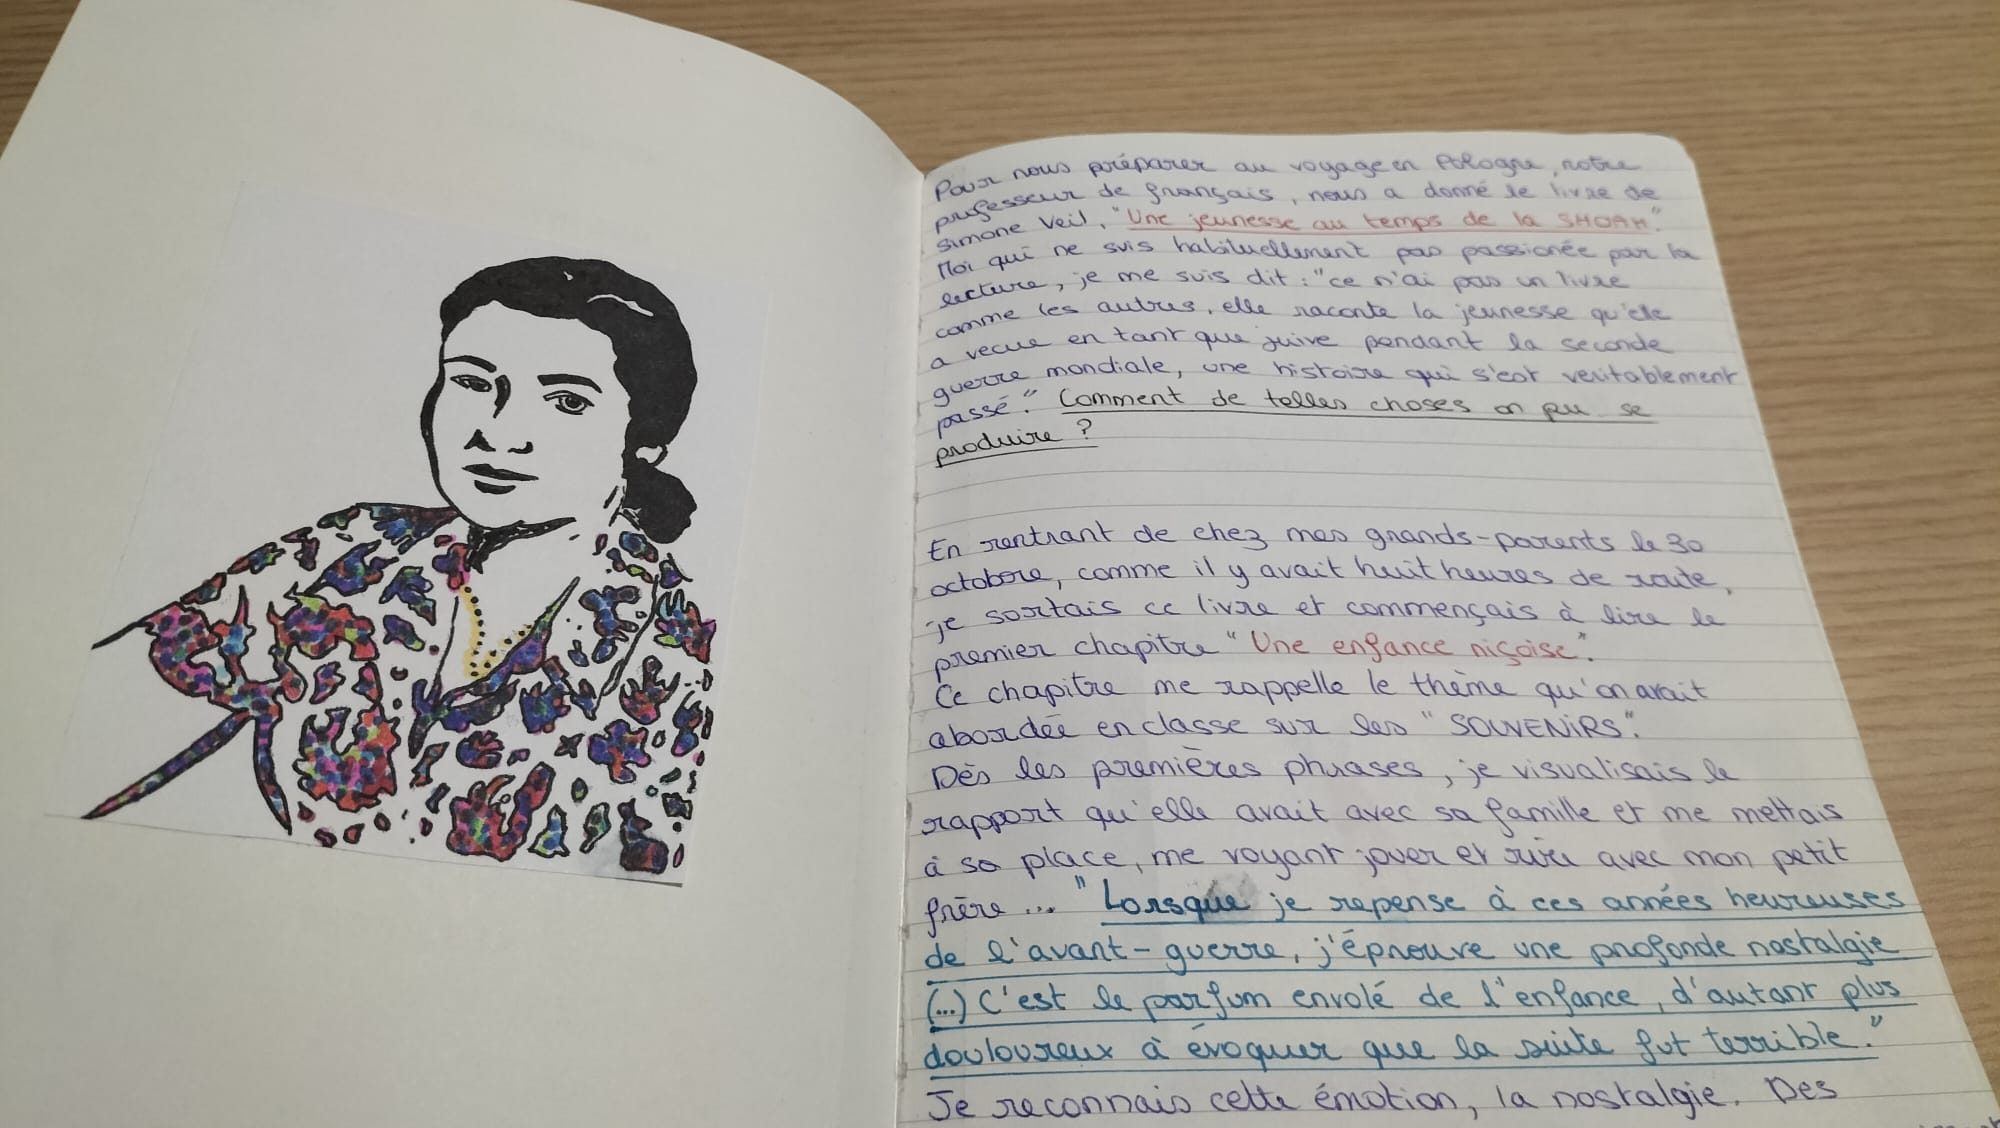 Pour nous préparer au voyage en Pologne, notre
professeur de français, nous a donné le livre de
Simone Veil, "Une jeunesse au temps de la SHOAH".
Moi qui ne suis habituellement pas passionée par la
lecture, je me suis dit : "ce n'ai pas un livre
comme les autres, elle raconte la jeunesse qu'elle
a vecue en tant que juive pendant la seconde
guerre mondiale, une histoire qui s'est veritablement
passé." Comment de telles choses on pu se
produire ?
En rentrant de chez mes grands-parents le 30
octobre, comme il y avait huit heures de route,
je sortais ce livre et commençais à lire le
premier chapitre "Une enfance niçoise".
Ce chapitre me rappelle le thème qu'on avait
abordée en classe sur les "SOUVENIRS".
Dès les premières phrases, je visualisais le
rapport qu'elle avait avec sa famille et me mettais
à sa place, me voyant jouer et rire avec mon petit
frère ... "Lorsque je repense à ces années heureuses
de l'avant-guerre, j'éprouve une profonde nostalgie
(...) C'est le parfum envolé de l'enfance, d'autant plus
douloureux à évoquer que la suite fut terrible."
Je reconnais cette émotion, la nostalgie. Des